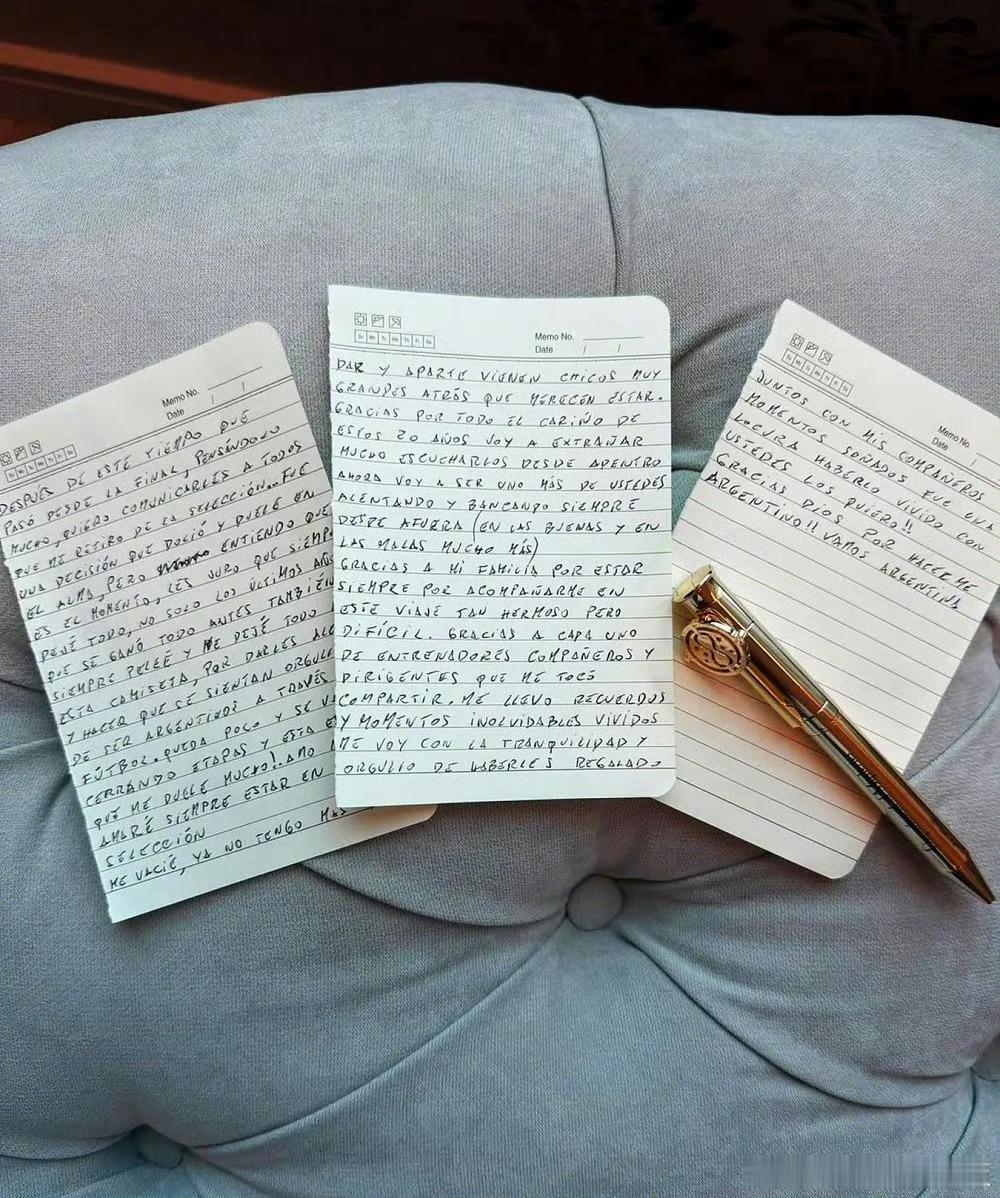 Memo No.
Date / /
DESPUÉS DE ESTE TIEMPO QUE
PASÓ DESDE LA FINAL, PENSÁNDOLO
MUCHO, QUIERO COMUNICARLES A TODOS
QUE ME RETIRO DE LA SELECCIÓN... FUE
UNA DECISIÓN QUE DOLIÓ Y DUELE EN
EL ALMA, PERO ENTIENDO QUE
ES EL MOMENTO, LES JURO QUE SIEMP
DEJÉ TODO, NO SOLO LOS ÚLTIMOS AÑO
QUE SE GANÓ TODO ANTES TAMBIÉN
SIEMPRE PELEÉ Y DEJÉ TODO
ESTA CAMISETA, POR DARLES ALE
Y HACER QUE SE SIENTAN ORGULL
DE SER ARGENTINOS A TRAVÉS
FÚTBOL. QUEDA POCO Y SE VA
CERRANDO ETAPAS Y ESTA E
QUE ME DUELE MUCHO! AMO
AMARÉ SIEMPRE ESTAR EN
SELECCIÓN
ME VACIÉ, YA NO TENGO MÁS
Su Mo Tu We Th Fr Sa
Memo No.
Date / /
DAR Y APARTE VIENEN CHICOS MUY
GRANDES ATRÁS QUE MERECEN ESTAR.
GRACIAS POR TODO EL CARIÑO DE
ESTOS 20 AÑOS VOY A EXTRAÑAR
MUCHO ESCUCHARLOS DESDE ADENTRO
AHORA VOY A SER UNO MÁS DE USTEDES
ALENTANDO Y BANCANDO SIEMPRE
DESDE AFUERA (EN LAS BUENAS Y EN
LAS MALAS MUCHO MÁS)
GRACIAS A MI FAMILIA POR ESTAR
SIEMPRE POR ACOMPAÑARME EN
ESTE VIAJE TAN HERMOSO PERO
DIFÍCIL. GRACIAS A CADA UNO
DE ENTRENADORES COMPAÑEROS Y
DIRIGENTES QUE ME TOCÓ
COMPARTIR. ME LLEVO RECUERDOS
Y MOMENTOS INOLVIDABLES VIVIDOS
ME VOY CON LA TRANQUILIDAD Y
ORGULLO DE HABERLES REGALADO
Memo No.
Date /
JUNTOS CON MIS COMPAÑEROS
MOMENTOS SOÑADOS FUE UNA
LOCURA HABERLO VIVIDO CON
USTEDES LOS QUIERO!!
GRACIAS DIOS POR HACERME
ARGENTINO!! VAMOS ARGENTINA